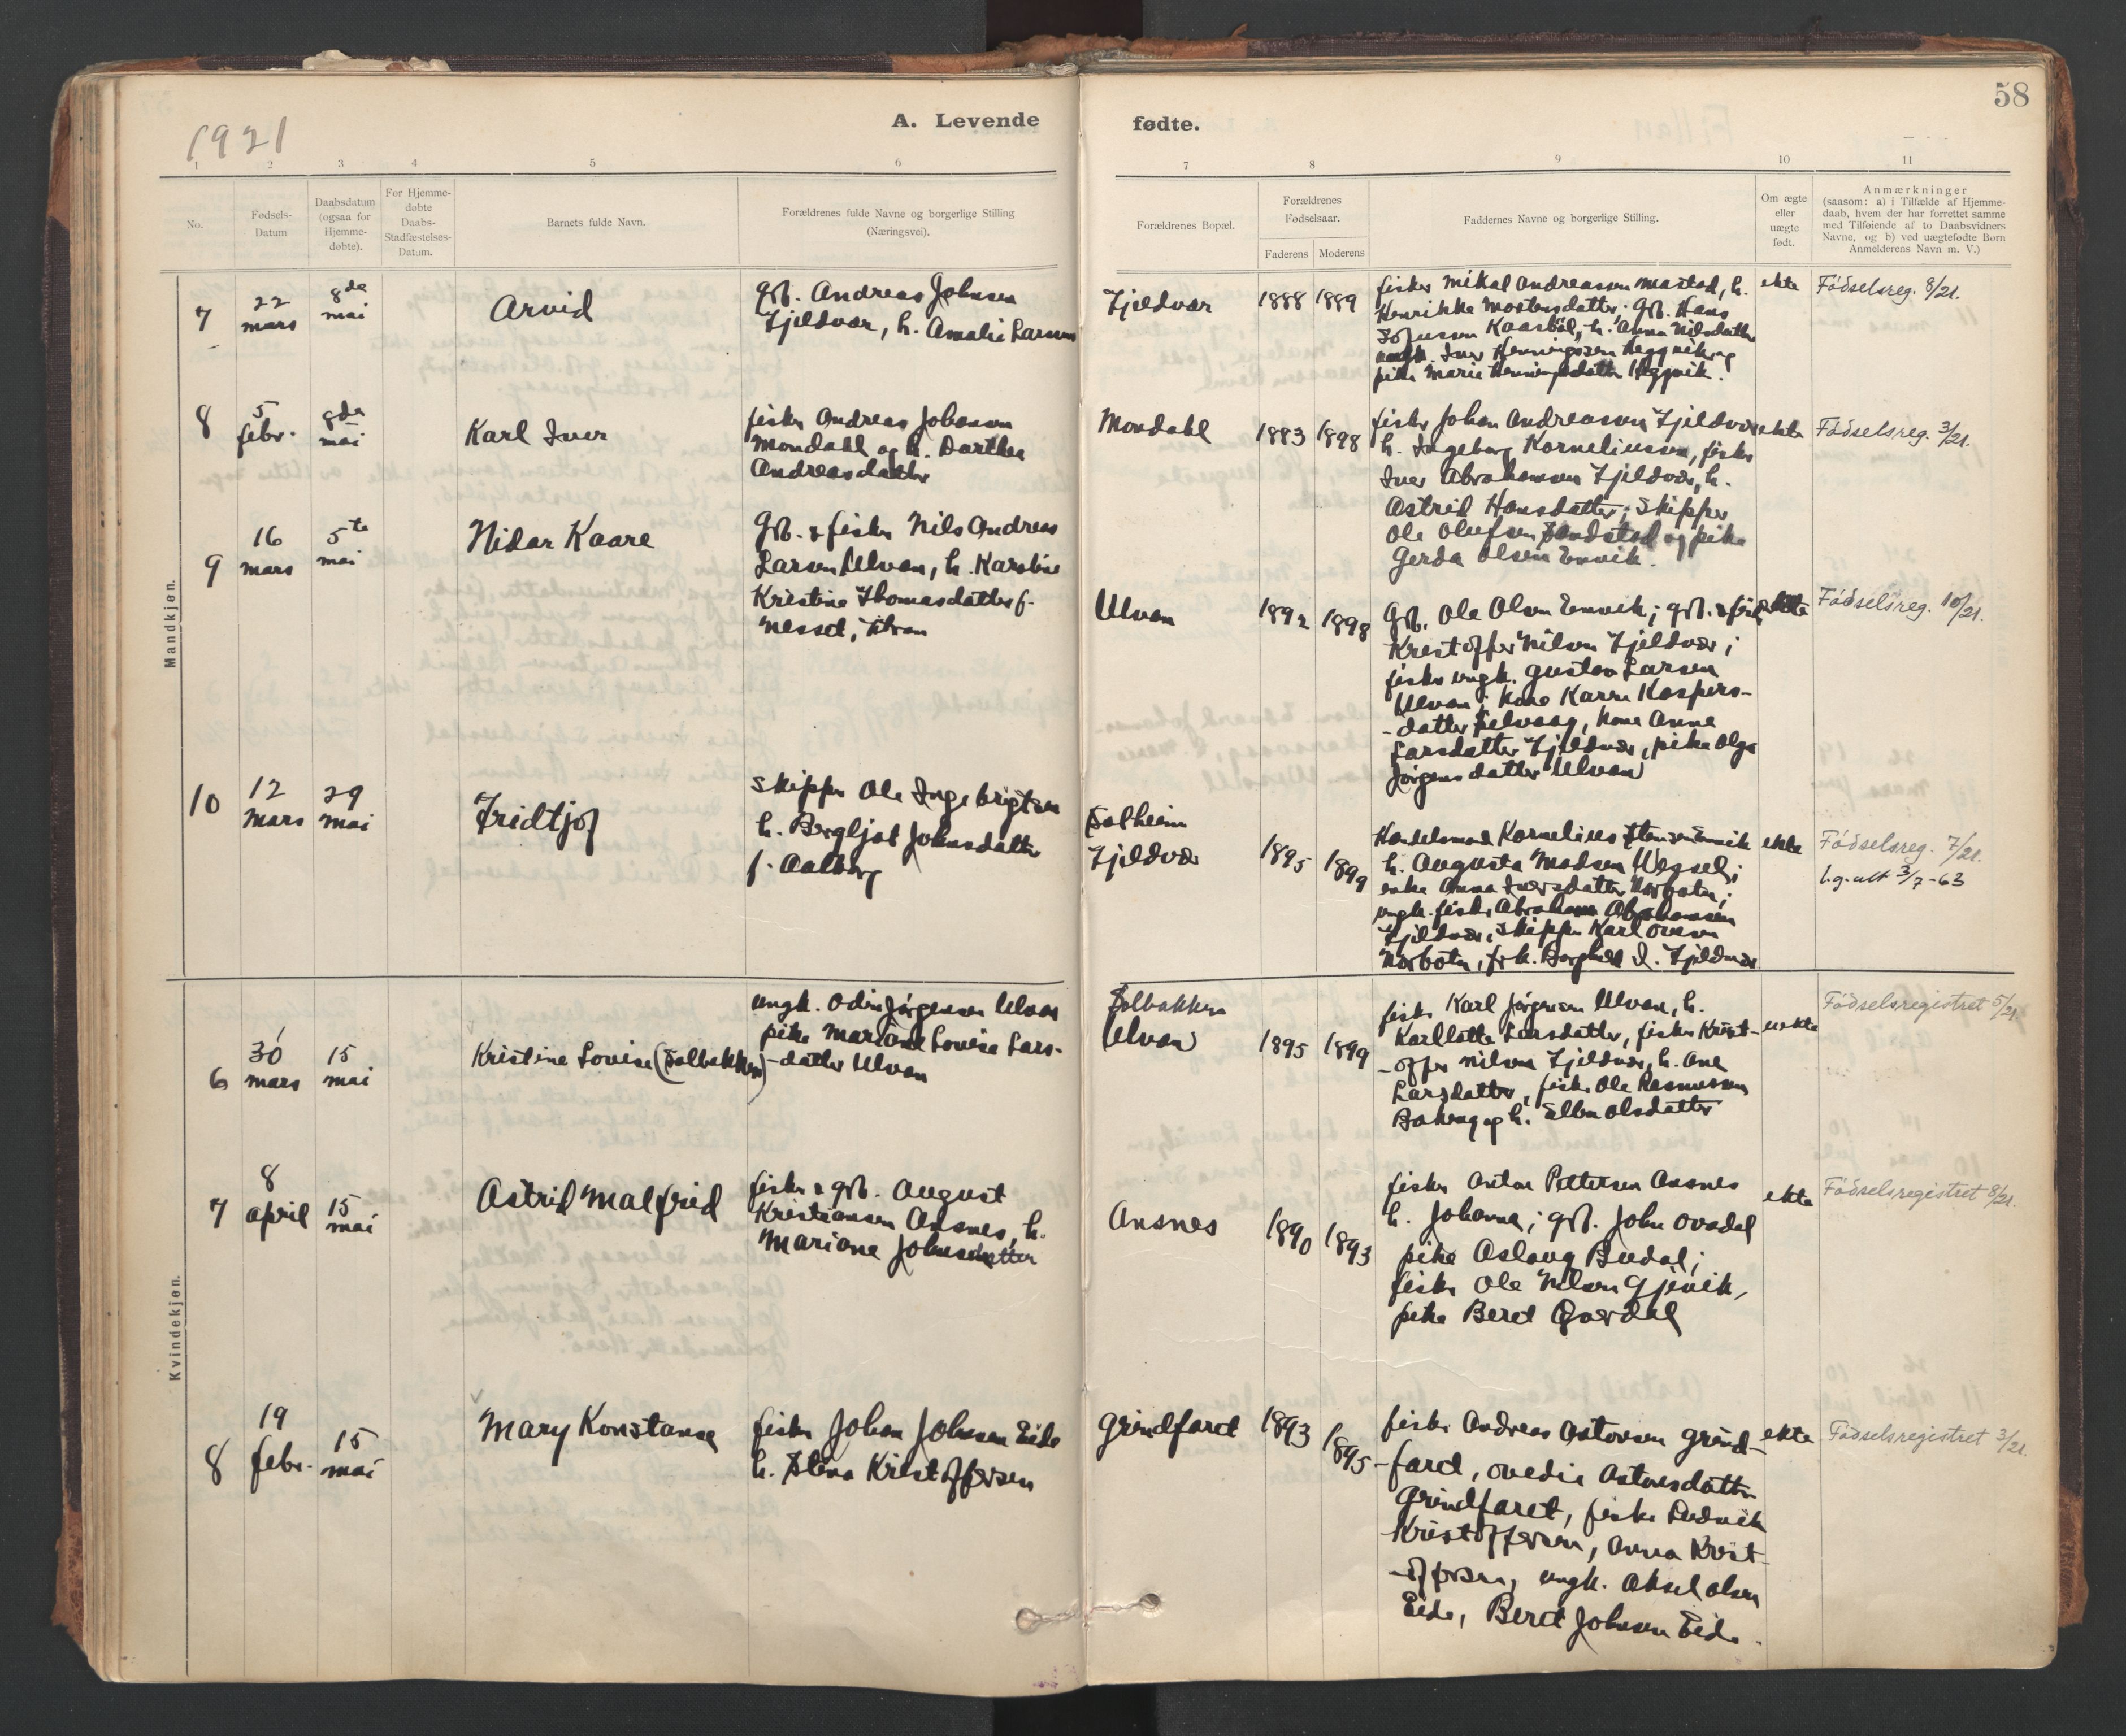 58
1921
A. Levende
fødte.
1 2 3 4 5 6
7 8 9 10 11
No.
Fødsels-
Datum
Daabsdatum
(ogsaa for
Hjemme-
døbte).
For Hjemme-
døbte
Daabs-
Stadfæstelses-
Datum.
Barnets fulde Navn.
Forældrenes fulde Navne og borgerlige Stilling
(Næringsvei).
Forældrenes Bopæl.
Forældrenes
Fødselsaar.
Faderens
Moderens
Faddernes Navne og borgerlige Stilling.
Om ægte
eller
uægte
født.
Anmærkninger
(saasom: a) i Tilfælde af Hjemme-
daab, hvem der har forrettet samme
med Tilføiende af to Daabsvidners
Navne, og b) ved uægtefødte Børn
Anmelderens Navn m. V.)
Mandkjøn.
7
22
mars
8de
mai
Arvid
gb. Andreas Johnsen
Fjeldvær, h. Amalie Larsen
Fjeldvær
1888
1889
fisker Mikal Andreassen Mastad, h.
Henrikke Mortensdatter; gb. Hans
Kaasbøl, h. Anna Nilsdatter
ungk. Iver Henningssen Heggvik og
pike Marie Henningsdatter Heggvik.
ekte
Fødselsreg. 8/21.
8
5
febr.
8de
mai
Karl Iver
fisker Andreas Johansen
Mondahl og h. Dorthea
Andreasdatter
Mondahl
1883
1898
fisker Johan Andreassen Fjeldvær
h. Ingeborg Korneliussen, fisker
Iver Abrahamsen Fjeldvær, h.
Astrid Hansdatter; skipper
Ole Olufsen Sandstad og pike
Gerda Olsen Envik.
ekte
Fødselsreg. 3/21.
9
16
mars
5te
mai
Nidar Kaare
gb. & fisker Nils Andreas
Larsen Ulvan, h. Karoline
Kristine Thomasdatter f.
Nessel, Titran
Ulvan
1892
1898
gb. Ole Olsen Envik; gb. & fisker
Kristoffer Nilsen Fjeldvær;
fisker ungk. Gustav Larsen
Ulvan; kone Karen Kaspers-
-datter Selvaag, kone Anne
Larsdatter Fjeldvær, pike Olga
Jørgensdatter Ulvan
ekte
Fødselsreg. 10/21.
10
12
mars
29
mai
Fridtjof
skipper Ole Ingebrigtsen
h. Bergljot Johnsdatter
f. Aalberg
Solheim
Fjeldvær
1895
1899
Handelsmand Kornelius Stensen Envik
h. Augusta Madsen Wessel;
enke Anna Iversdatter Norbotn;
ungk. fisker Abraham Abrahamsen
Fjeldvær, skipper Karl Ovesen
Norbotn, frk. Borghild I. Fjeldvær
ekte
Fødselsreg. 7/21.
l.g.att 3/7-63
Kvindekjøn.
6
30
mars
15
mai
Kristine Lovise (Solbakken)
ungk. Odin Jørgensen Ulvan
pike Mariane Lovise Lars-
-datter Ulvan
Solbakken
Ulvan
1895
1899
fisker Karl Jørgensen Ulvan, h.
Karllotte Larsdatter, fisker Krist-
-offer Nilsen Fjeldvær, h. Ane
Larsdatter, fisker Ole Rasmussen
og h. Ellen Olsdatter
uekte
Fødselsregistret 5/21.
7
8
april
15
mai
Astrid Malfrid
fisker & gb. August
Kristiansen Ansnes, h.
Mariane Johnsdatter
Ansnes
1890
1893
fisker Anton Pettersen Ansnes
h. Johanna; gb. John Ovedal
pike Aslaug Budal;
fisker Ole Nilsen Gjevik,
pike Beret
ekte
Fødselsregistret 8/21.
8
19
febr.
15
mai
Mary Konstanse
fisker Johan Johnsen Eide
h. Stina Kristoffersen
Grindfaret
1893
1895
fisker Andreas Antonsen Grind-
-faret, Ovedie Antonsdatter
Grindfaret, fisker Ludvik
Kristoffersen, Anna Krist-
-offersen, ungk. Aksel Olsen
Eide, Beret Johnsen Eide.
ekte
Fødselsregistret 3/21.